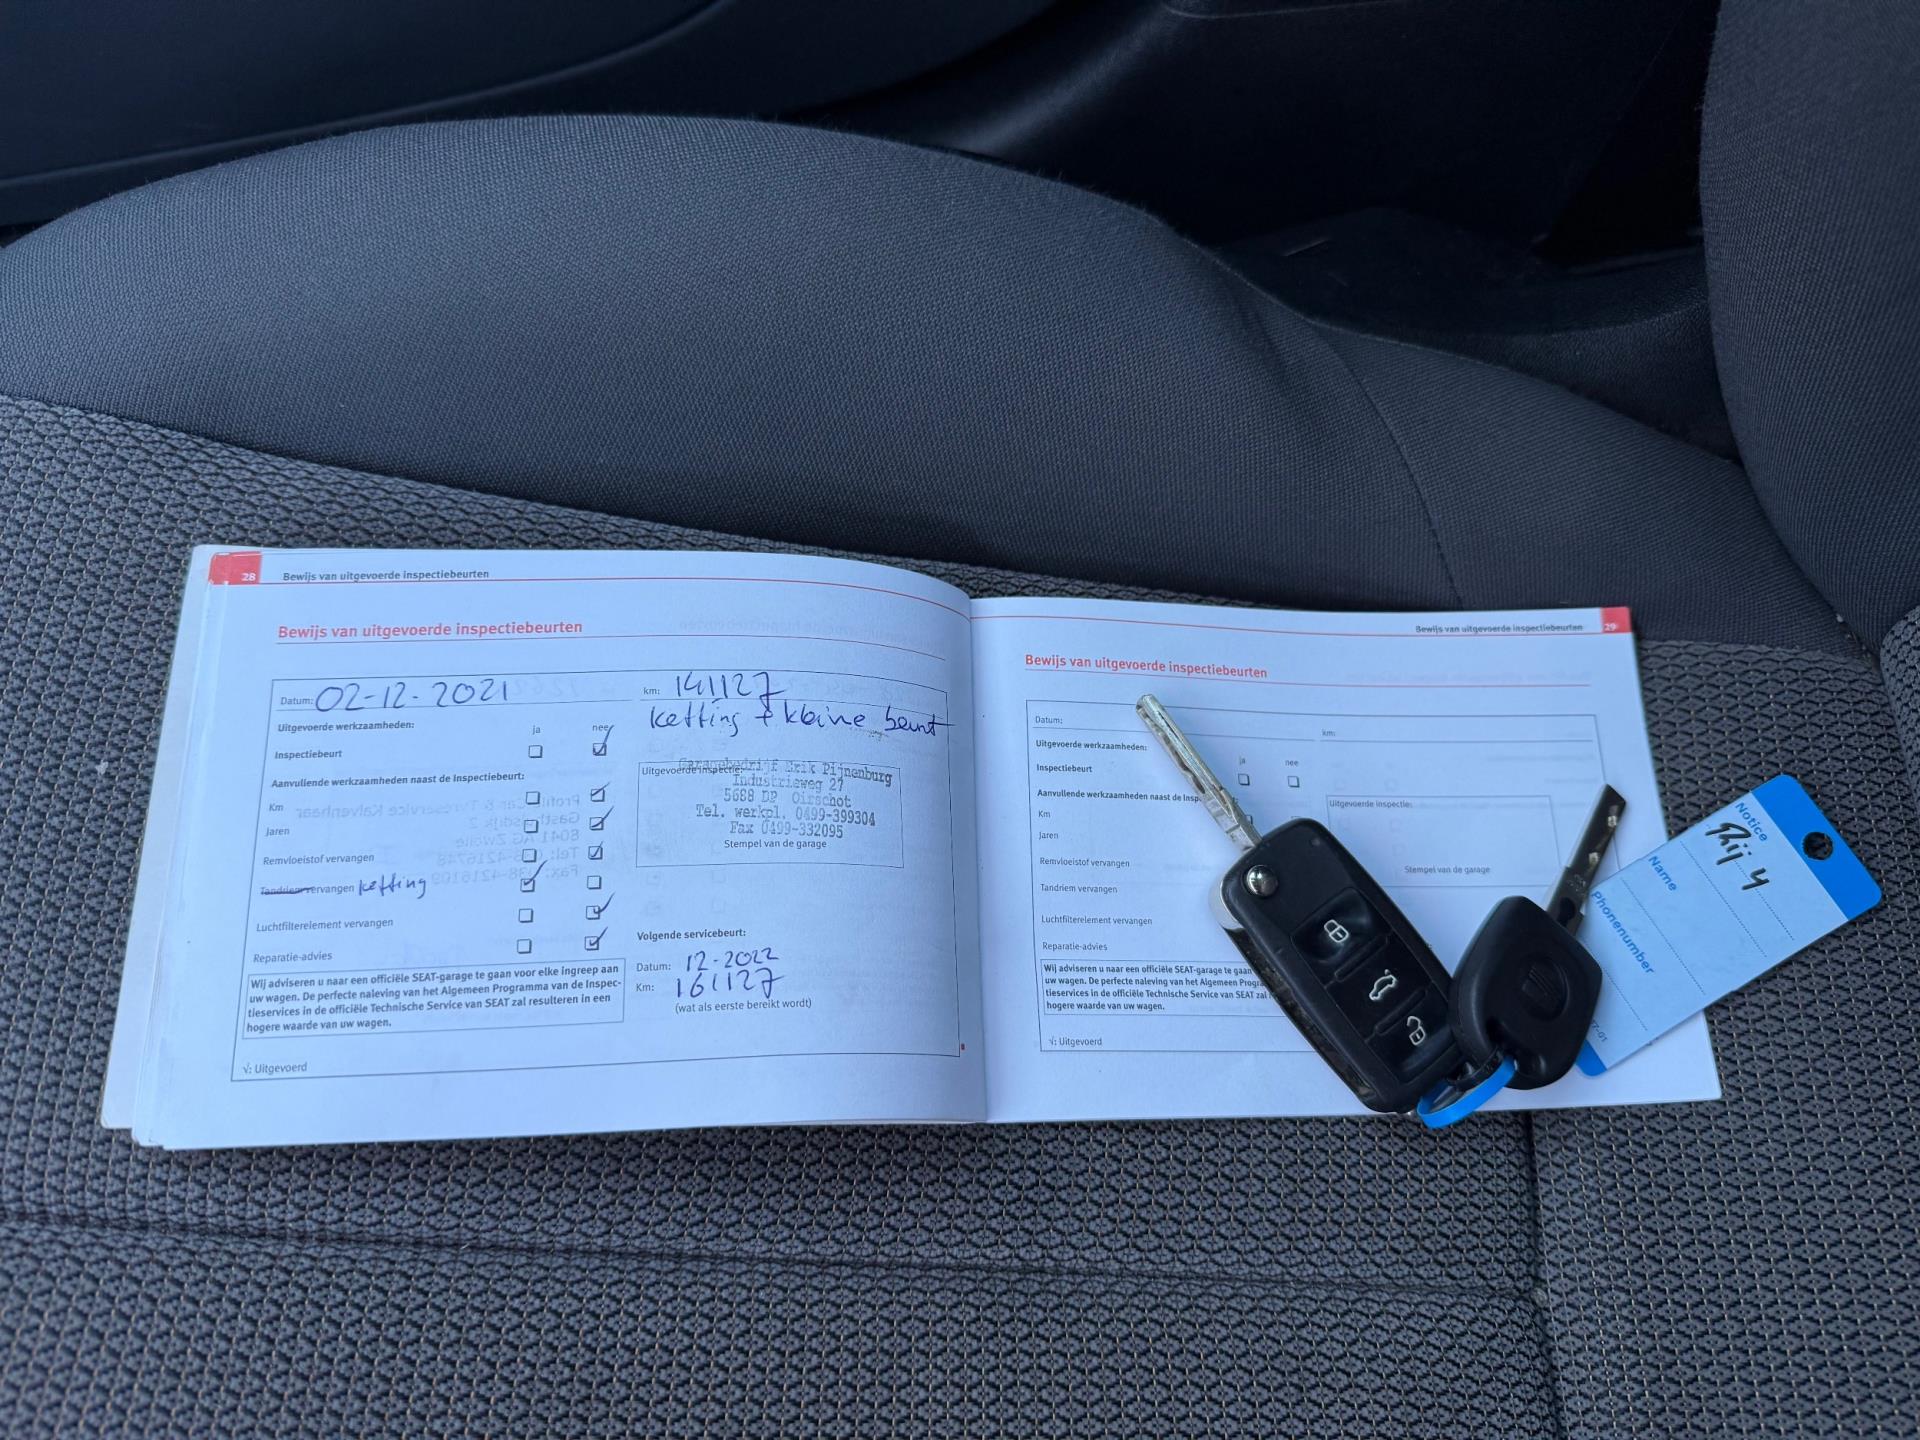 28 Bewijs van uitgevoerde inspectiebeurten
Bewijs van uitgevoerde inspectiebeurten
Datum: 02-12-2021 km: 141127
ketting + kleine beurt
Uitgevoerde werkzaamheden: ja nee
Inspectiebeurt
Aanvullende werkzaamheden naast de Inspectiebeurt:
Km
Jaren
Remvloeistof vervangen
Tandriem vervangen ketting
Luchtfilterelement vervangen
Reparatie-advies
Uitgevoerde inspectie:
Garagebedrijf Erik Pijnenburg
Industrieweg 27
5688 DP Oirschot
Tel. werkpl. 0499-399304
Fax 0499-332095
Stempel van de garage
Volgende servicebeurt:
Datum: 12-2022
Km: 161127
(wat als eerste bereikt wordt)
Wij adviseren u naar een officiële SEAT-garage te gaan voor elke ingreep aan
uw wagen. De perfecte naleving van het Algemeen Programma van de Inspec-
tieservices in de officiële Technische Service van SEAT zal resulteren in een
hogere waarde van uw wagen.
√: Uitgevoerd
Bewijs van uitgevoerde inspectiebeurten 29
Bewijs van uitgevoerde inspectiebeurten
Datum: km:
Uitgevoerde werkzaamheden:
ja nee
Inspectiebeurt
Aanvullende werkzaamheden naast de Insp
Km
Jaren
Remvloeistof vervangen
Tandriem vervangen
Luchtfilterelement vervangen
Reparatie-advies
Uitgevoerde inspectie:
Stempel van de garage
Wij adviseren u naar een officiële SEAT-garage te gaan
uw wagen. De perfecte naleving van het Algemeen Progra
tieservices in de officiële Technische Service van SEAT zal
hogere waarde van uw wagen.
√: Uitgevoerd
Notice
Rij 4
Name
Phonenumber